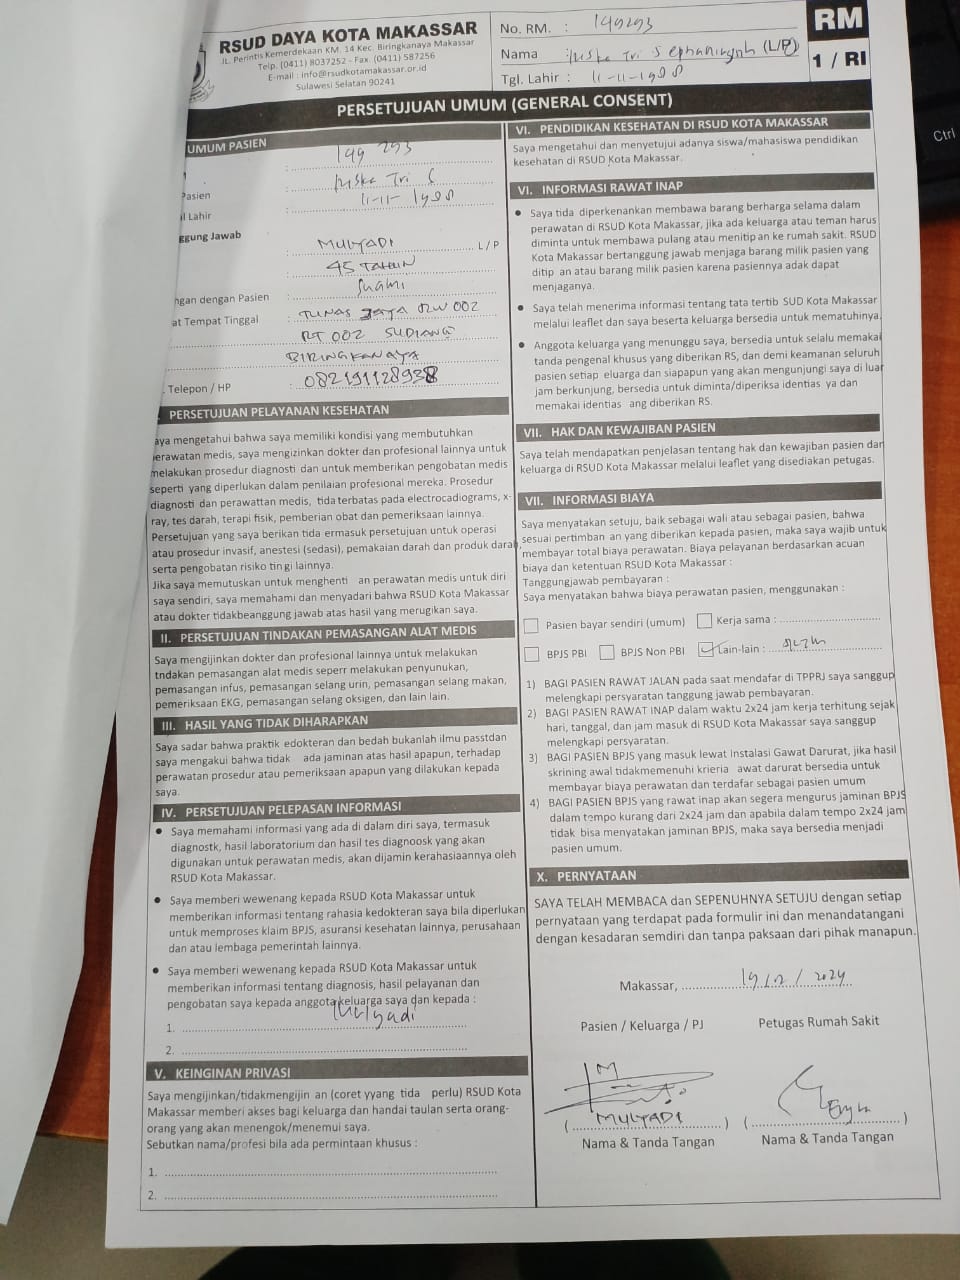 RSUD DAYA KOTA MAKASSAR
JL. Perintis Kemerdekaan KM. 14 Kec. Biringkanaya Makassar
Telp. (0411) 8037252 - Fax. (0411) 587256
E-mail : info@rsudkotamakassar.or.id
Sulawesi Selatan 90241
No. RM. : 149293
Nama : Tri (L/P)
Tgl. Lahir : 11-11-1988
RM
1 / RI
Ctrl
PERSETUJUAN UMUM (GENERAL CONSENT)
UMUM PASIEN
: 149 293
Pasien : Tri S
l Lahir : 11-11-1988
ggung Jawab
: MULYADI L/P
: 45 TAHUN
ngan dengan Pasien : Suami
at Tempat Tinggal : TUNAS JAYA RW 002
RT 002 SUDIANG
BIRINGKANAYA
Telepon / HP : 082191128938
PERSETUJUAN PELAYANAN KESEHATAN
aya mengetahui bahwa saya memiliki kondisi yang membutuhkan
erawatan medis, saya mengizinkan dokter dan profesional lainnya untuk
melakukan prosedur diagnosti dan untuk memberikan pengobatan medis
seperti yang diperlukan dalam penilaian profesional mereka. Prosedur
diagnosti dan perawattan medis, tida terbatas pada electrocadiograms, x-
ray, tes darah, terapi fisik, pemberian obat dan pemeriksaan lainnya.
Persetujuan yang saya berikan tida ermasuk persetujuan untuk operasi
atau prosedur invasif, anestesi (sedasi), pemakaian darah dan produk darah,
serta pengobatan risiko tin gi lainnya.
Jika saya memutuskan untuk menghenti an perawatan medis untuk diri
saya sendiri, saya memahami dan menyadari bahwa RSUD Kota Makassar
atau dokter tidakbeanggung jawab atas hasil yang merugikan saya.
II. PERSETUJUAN TINDAKAN PEMASANGAN ALAT MEDIS
Saya mengijinkan dokter dan profesional lainnya untuk melakukan
tndakan pemasangan alat medis seperr melakukan penyunukan,
pemasangan infus, pemasangan selang urin, pemasangan selang makan,
pemeriksaan EKG, pemasangan selang oksigen, dan lain lain.
III. HASIL YANG TIDAK DIHARAPKAN
Saya sadar bahwa praktik edokteran dan bedah bukanlah ilmu passtdan
saya mengakui bahwa tidak ada jaminan atas hasil apapun, terhadap
perawatan prosedur atau pemeriksaan apapun yang dilakukan kepada
saya.
IV. PERSETUJUAN PELEPASAN INFORMASI
• Saya memahami informasi yang ada di dalam diri saya, termasuk
diagnostk, hasil laboratorium dan hasil tes diagnoosk yang akan
digunakan untuk perawatan medis, akan dijamin kerahasiaannya oleh
RSUD Kota Makassar.
• Saya memberi wewenang kepada RSUD Kota Makassar untuk
memberikan informasi tentang rahasia kedokteran saya bila diperlukan
untuk memproses klaim BPJS, asuransi kesehatan lainnya, perusahaan
dan atau lembaga pemerintah lainnya.
• Saya memberi wewenang kepada RSUD Kota Makassar untuk
memberikan informasi tentang diagnosis, hasil pelayanan dan
pengobatan saya kepada anggota keluarga saya dan kepada :
1. Mulyadi
2.
V. KEINGINAN PRIVASI
Saya mengijinkan/tidakmengijin an (coret yyang tida perlu) RSUD Kota
Makassar memberi akses bagi keluarga dan handai taulan serta orang-
orang yang akan menengok/menemui saya.
Sebutkan nama/profesi bila ada permintaan khusus :
1.
2.
VI. PENDIDIKAN KESEHATAN DI RSUD KOTA MAKASSAR
Saya mengetahui dan menyetujui adanya siswa/mahasiswa pendidikan
kesehatan di RSUD Kota Makassar.
VI. INFORMASI RAWAT INAP
• Saya tida diperkenankan membawa barang berharga selama dalam
perawatan di RSUD Kota Makassar, jika ada keluarga atau teman harus
diminta untuk membawa pulang atau menitip an ke rumah sakit. RSUD
Kota Makassar bertanggung jawab menjaga barang milik pasien yang
ditip an atau barang milik pasien karena pasiennya adak dapat
menjaganya.
• Saya telah menerima informasi tentang tata tertib SUD Kota Makassar
melalui leaflet dan saya beserta keluarga bersedia untuk mematuhinya.
• Anggota keluarga yang menunggu saya, bersedia untuk selalu memakai
tanda pengenal khusus yang diberikan RS, dan demi keamanan seluruh
pasien setiap eluarga dan siapapun yang akan mengunjungi saya di luar
jam berkunjung, bersedia untuk diminta/diperiksa identias ya dan
memakai identias ang diberikan RS.
VII. HAK DAN KEWAJIBAN PASIEN
Saya telah mendapatkan penjelasan tentang hak dan kewajiban pasien dan
keluarga di RSUD Kota Makassar melalui leaflet yang disediakan petugas.
VII. INFORMASI BIAYA
Saya menyatakan setuju, baik sebagai wali atau sebagai pasien, bahwa
sesuai pertimban an yang diberikan kepada pasien, maka saya wajib untuk
membayar total biaya perawatan. Biaya pelayanan berdasarkan acuan
biaya dan ketentuan RSUD Kota Makassar :
Tanggungjawab pembayaran :
Saya menyatakan bahwa biaya perawatan pasien, menggunakan :
Pasien bayar sendiri (umum) Kerja sama :
BPJS PBI BPJS Non PBI Lain-lain :
1) BAGI PASIEN RAWAT JALAN pada saat mendafar di TPPRJ saya sanggup
melengkapi persyaratan tanggung jawab pembayaran.
2) BAGI PASIEN RAWAT INAP dalam waktu 2x24 jam kerja terhitung sejak
hari, tanggal, dan jam masuk di RSUD Kota Makassar saya sanggup
melengkapi persyaratan.
3) BAGI PASIEN BPJS yang masuk lewat Instalasi Gawat Darurat, jika hasil
skrining awal tidakmemenuhi krieria awat darurat bersedia untuk
membayar biaya perawatan dan terdafar sebagai pasien umum
4) BAGI PASIEN BPJS yang rawat inap akan segera mengurus jaminan BPJS
dalam tempo kurang dari 2x24 jam dan apabila dalam tempo 2x24 jam
tidak bisa menyatakan jaminan BPJS, maka saya bersedia menjadi
pasien umum.
X. PERNYATAAN
SAYA TELAH MEMBACA dan SEPENUHNYA SETUJU dengan setiap
pernyataan yang terdapat pada formulir ini dan menandatangani
dengan kesadaran semdiri dan tanpa paksaan dari pihak manapun.
Makassar, 19/12/2024
Pasien / Keluarga / PJ Petugas Rumah Sakit
( MULYADI ) ( )
Nama & Tanda Tangan Nama & Tanda Tangan